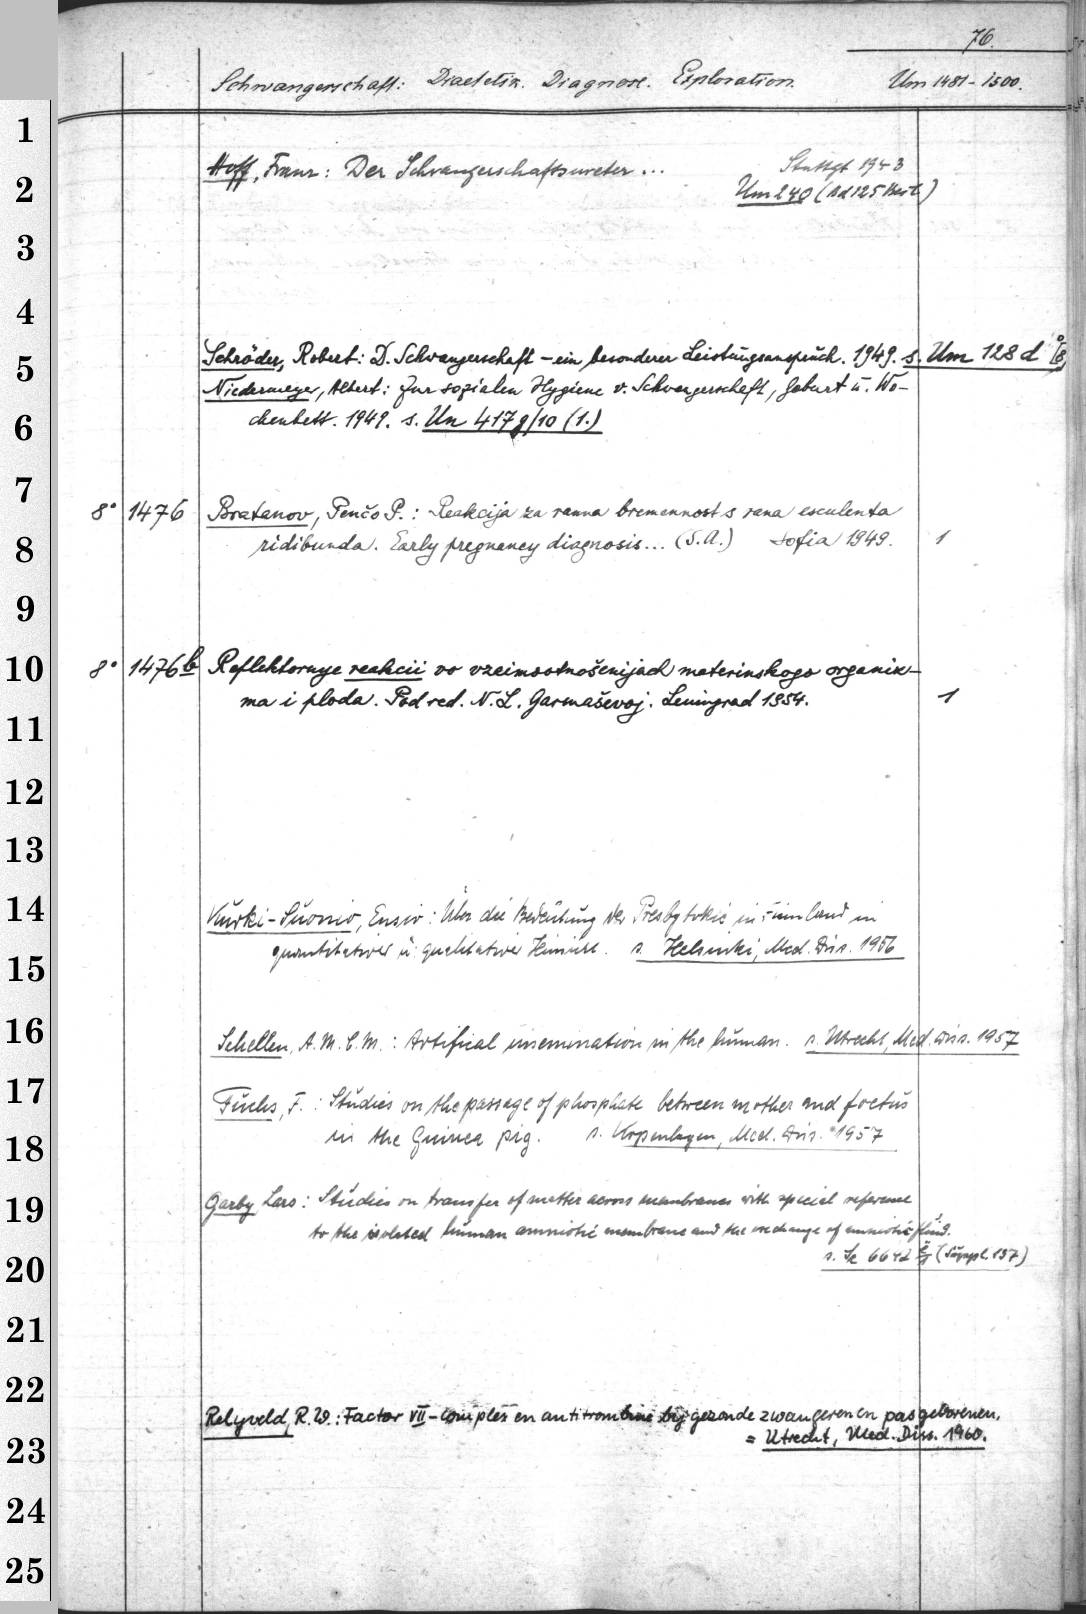 76.
Schwangerschaft: Diaetetik. Diagnose. Exploration. Um 1481-1500.
1
Hoff, Franz: Der Schwangerschaftsureter ... Stuttgt 1943
2
Um 240 (Ad 125 Berl.)
3
4
Schröder, Robert: D. Schwangerschaft – ein besonderer Leistungsanspruch. 1949. s. Um 128 d
5
Niedermeyer, Albert: Zur sozialen Hygiene v. Schwangerschaft, Geburt u. Wo-
6
chenbett. 1949. s. Un 417 g/10 (1.)
7
8° 1476 Bratanov, Penčo P.: Reakcija za ranna bremennost s rana esculenta
8
ridibunda. Early pregnancy diagnosis... (S.A.) Sofia 1949. 1
9
10
8° 1476 b Reflektornye reakcii vo vzaimootnošenijach materinskogo organiz-
ma i ploda. Pod red. N. L. Garmaševoj. Leningrad 1954. 1
11
12
13
14
Kurki-Suonio, Ensio: Über die Bedeutung der Presbytokie in Finnland in
quantitativer u. qualitativer Hinsicht. s. Helsinki, Med. Diss. 1956
15
16
Schellen, A.M.C.M.: Artifical insemination in the human. s. Utrecht, Med. Diss. 1957
17
Fuchs, F.: Studies on the passage of phosphate between mother and foetus
18
in the Guinea pig. s. Kopenhagen, Med. Diss. 1957
19
Garby Lars: Studies on transfer of matter across membranes with special reference
to the isolated human amniotic membrane and the exchange of amniotic fluid.
20
(Suppl. 137)
21
22
Relyveld, R.W.: Factor VII-complex en antitrombine bij gezonde zwangeren en pasgeborenen.
23
= Utrecht, Med. Diss. 1960.
24
25